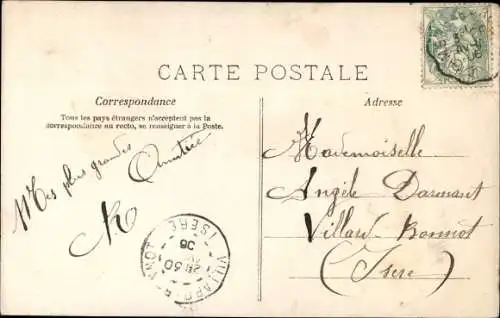 CARTE POSTALE
Correspondance
Tous les pays étrangers n'acceptent pas la
correspondance au recto, se renseigner à la Poste.
Mes plus grandes
Amitiés
Adresse
Mademoiselle
Angèle Darmant
Villard Bonnot
(Isère)
ISÈRE
06
VILLARD